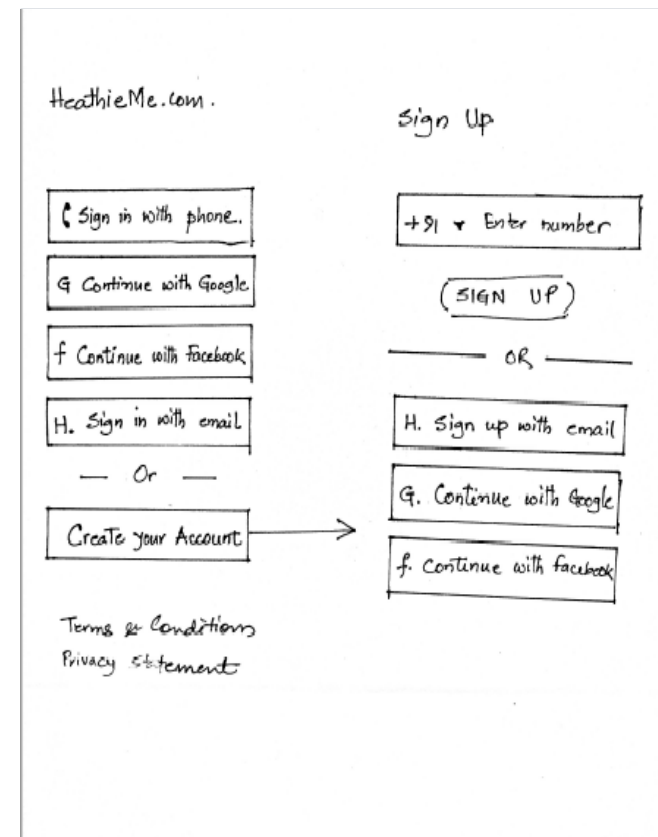 HeathieMe.com.
Sign in with phone.
G Continue with Google
f Continue with Facebook
H. Sign in with email
— Or —
Create your Account
Terms & Conditions
Privacy Statement
Sign Up
+91 ▾ Enter number
SIGN UP
— OR —
H. Sign up with email
G. Continue with Google
f. Continue with facebook